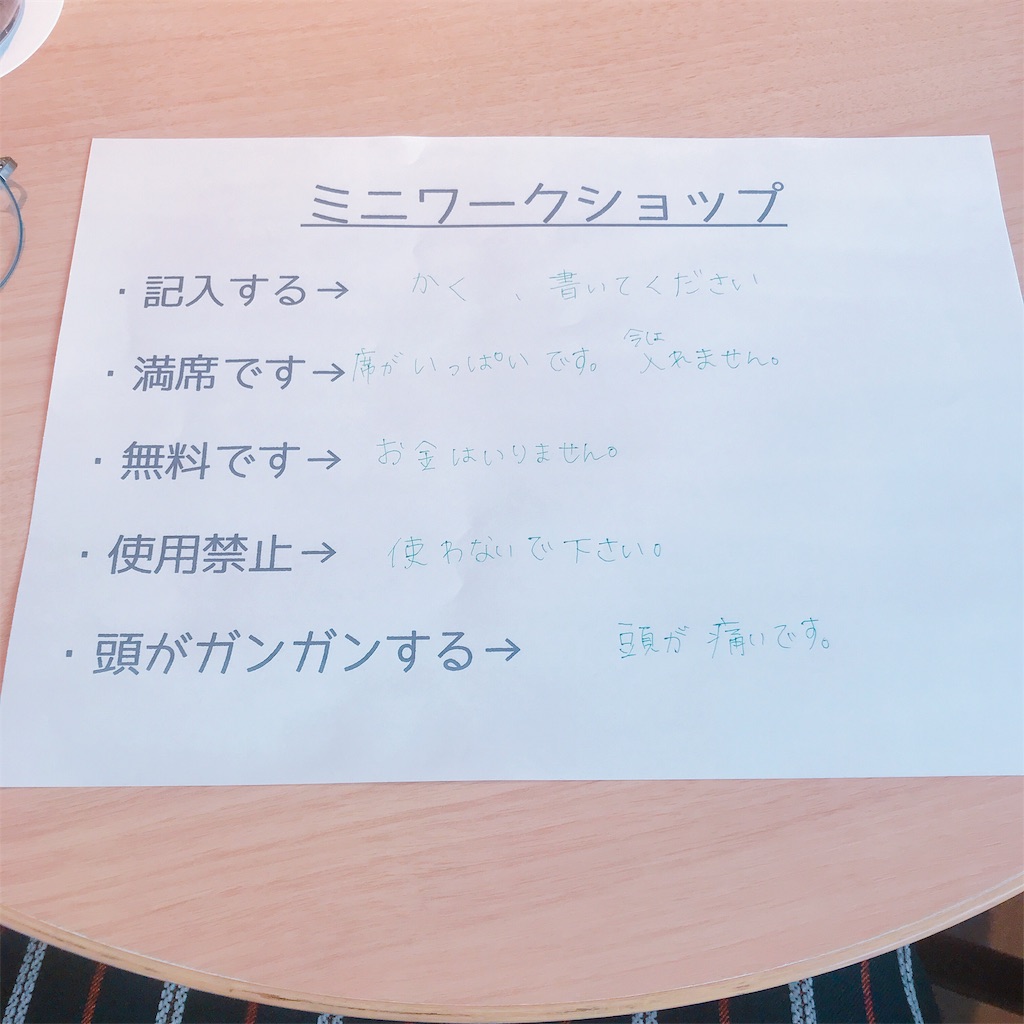 ミニワークショップ
・記入する→ かく 、書いてください
・満席です→席がいっぱいです。今は入れません。
・無料です→ お金はいりません。
・使用禁止→ 使わないで下さい。
・頭がガンガンする→ 頭が痛いです。